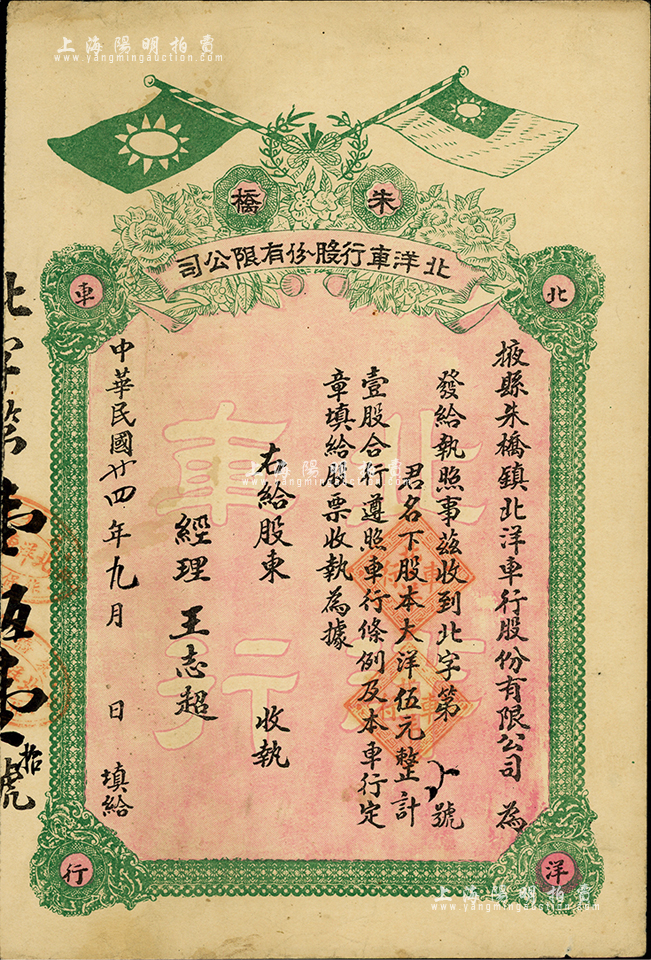 上海陽明拍賣
www.yangmingauction.com
朱橋
北洋車行股份有限公司
北
車
掖縣朱橋鎮北洋車行股份有限公司 為
發給執照事茲收到北字第 號
君名下股本大洋伍元整計
壹股合行遵照車行條例及本車行定
章填給股票收執為據
右給股東 收執
經理 王志超
中華民國廿四年九月 日 填給
北洋
車行
北字第壹伍壹拾號
洋
行
上海陽明拍賣
www.yangmingauction.com
上海陽明拍賣
www.yangmingauction.com